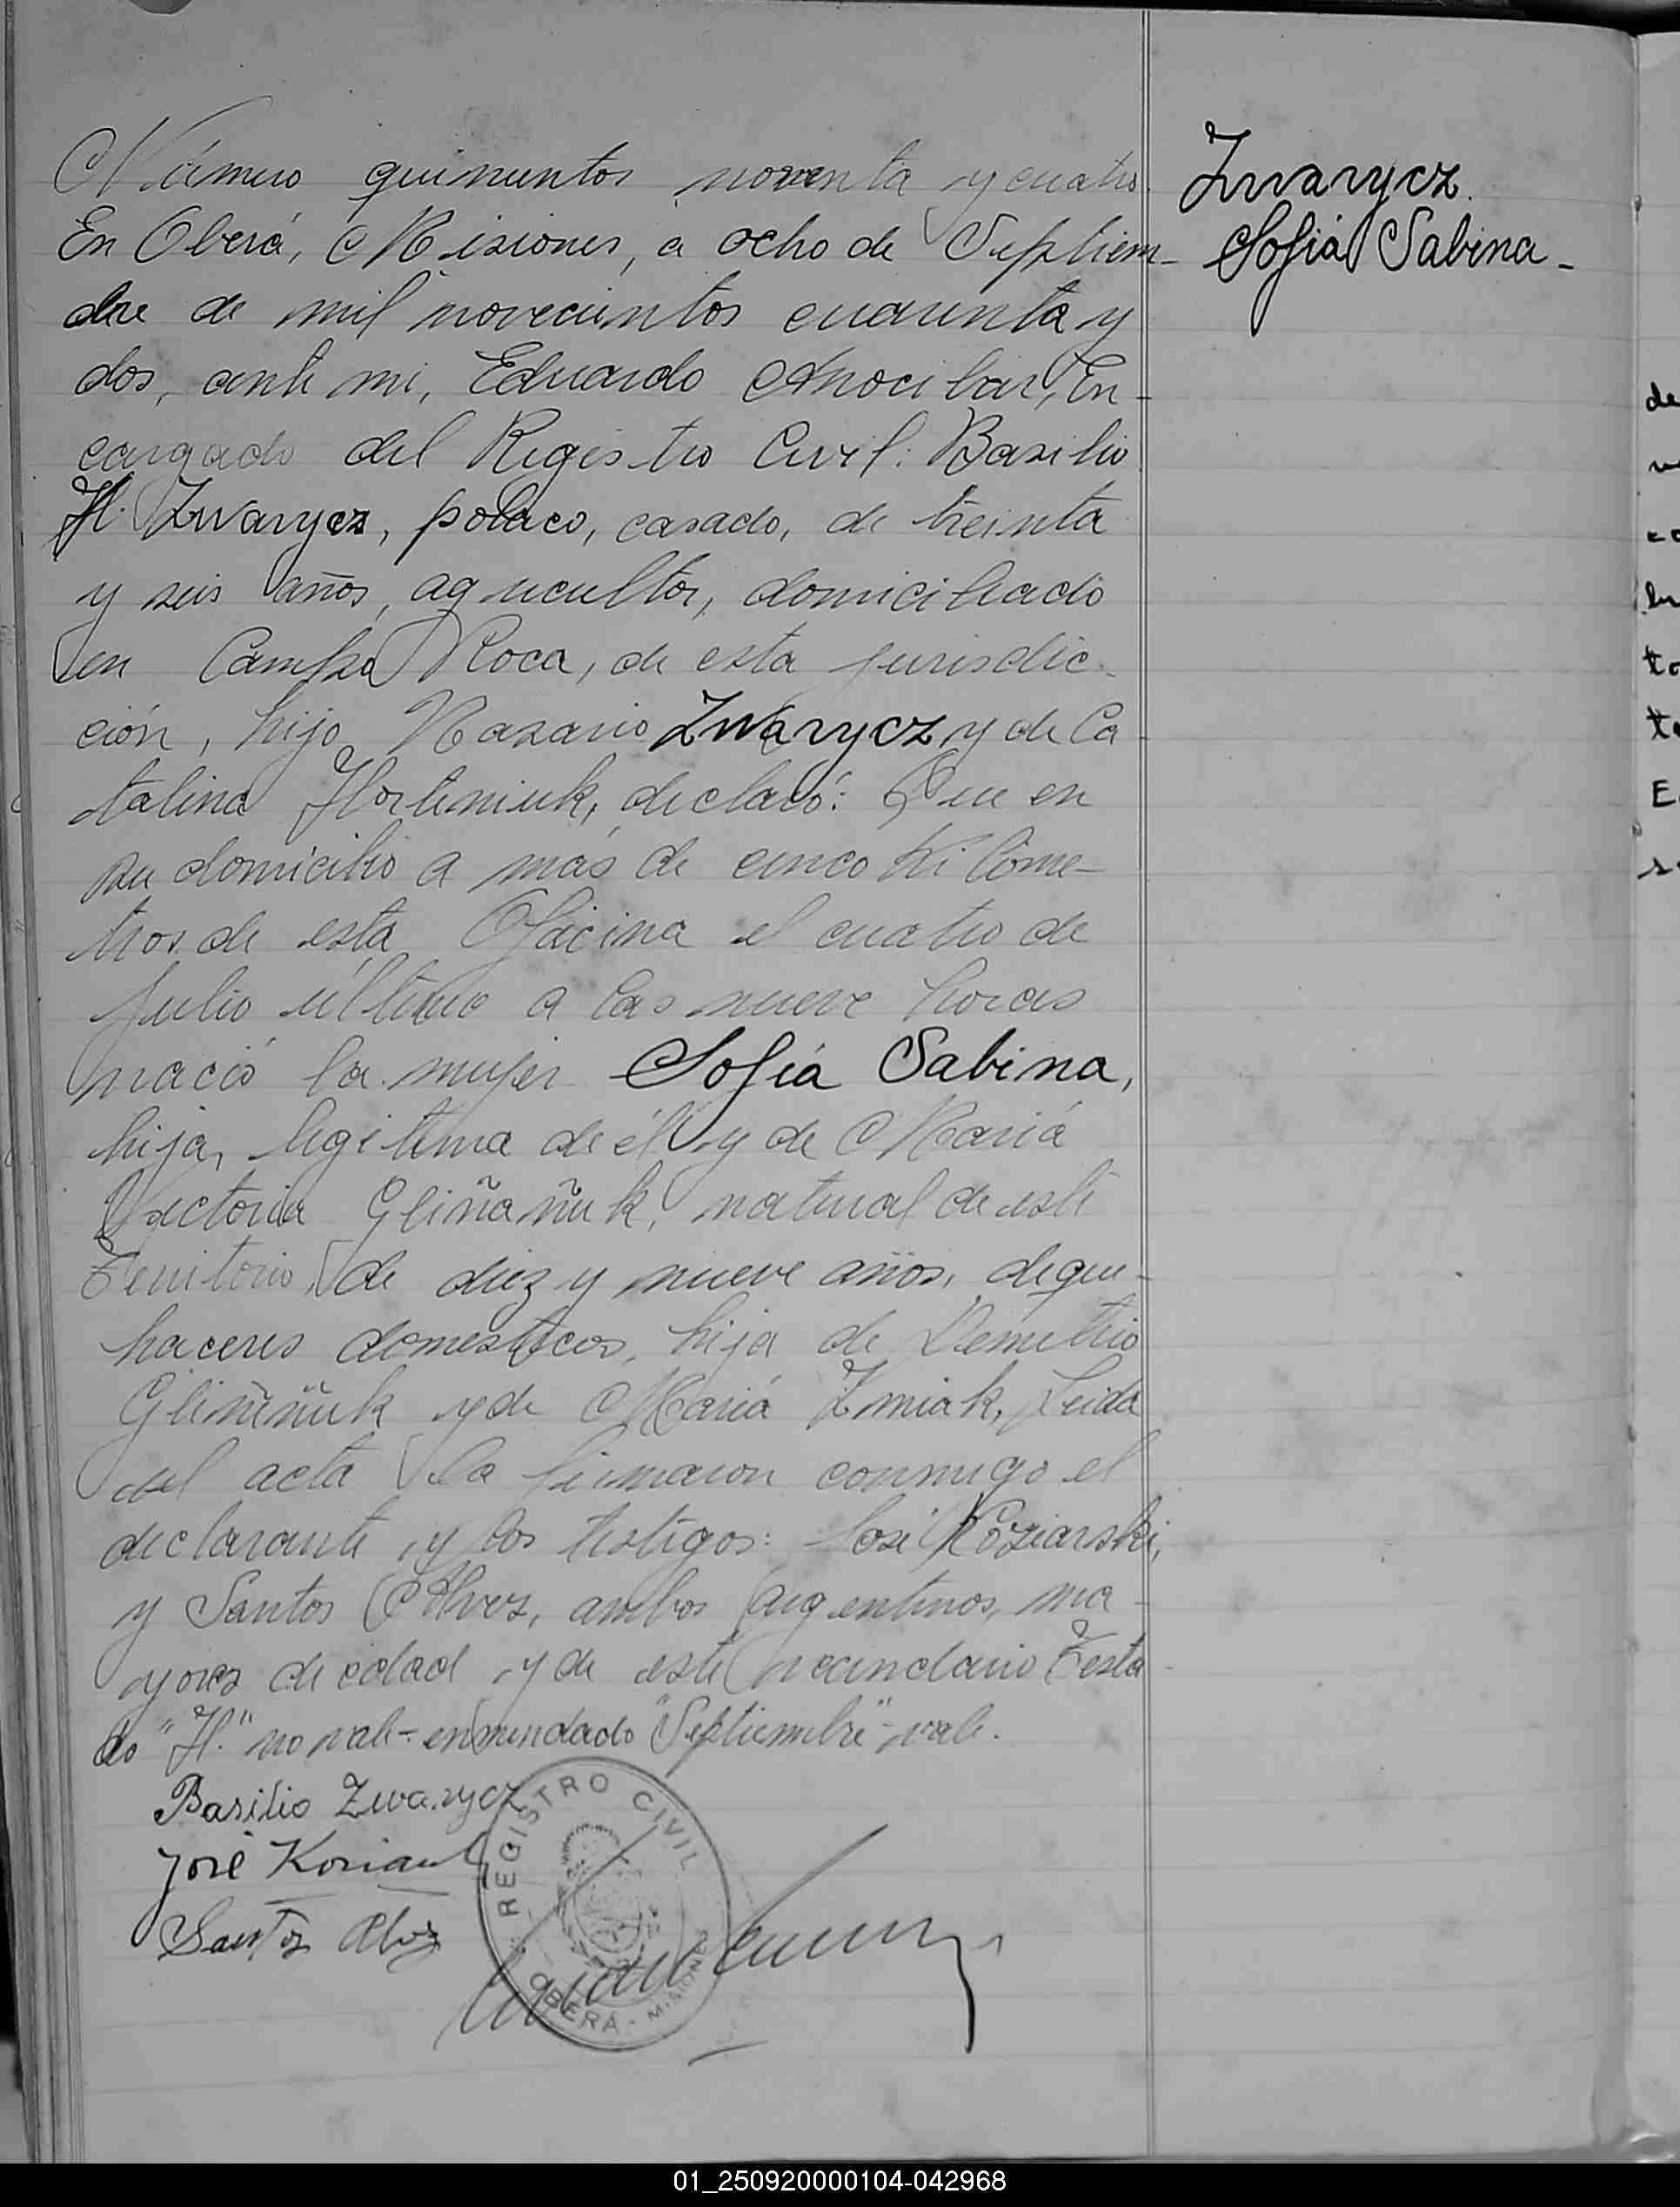 Número quinientos noventa y cuatro.
Zwarycz
En Oberá, Misiones, a ocho de Septiem-
Sofía Sabina -
bre de mil novecientos cuarenta y
dos, ante mi, Eduardo Anocibar, En-
cargado del Registro Civil: Basilio
H. Zwarycz, polaco, casado, de treinta
y seis años, agricultor, domiciliado
en Campo Roca, de esta jurisdic-
ción, hijo Nazario Zwarycz y de Ca-
talina Horteniuk, declaró: Que en
su domicilio a más de cinco kilóme-
tros de esta Oficina el cuatro de
Julio último a las nueve horas
nació la mujer Sofía Sabina,
hija, legitima de él y de María
Victoria Gliñañuk, natural de este
Territorio, de diez y nueve años, de que-
haceres domesticos, hija de Demetrio
Gliñiñuk y de María Zmiak, Leida
el acta la firmaron conmigo el
declarante y los testigos: José Koziarski,
y Santos Alvez, ambos argentinos, ma-
yores de edad y de este vecindario Testa-
do "H." no vale - enmendado "Septiembre" - vale.
Basilio Zwarycz
José
Santos Alvez
REGISTRO CIVIL
OBERÁ - MISIONES
de
to
01_250920000104-042968